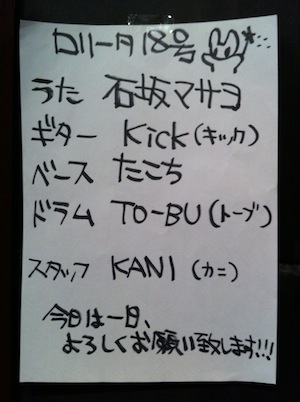 ロリータ18号
うた 石坂マサヨ
ギター Kick(キック)
ベース たこち
ドラム TO-BU(トーブ)
スタッフ KANI(カニ)
今日は一日、
よろしくお願い致します!!!